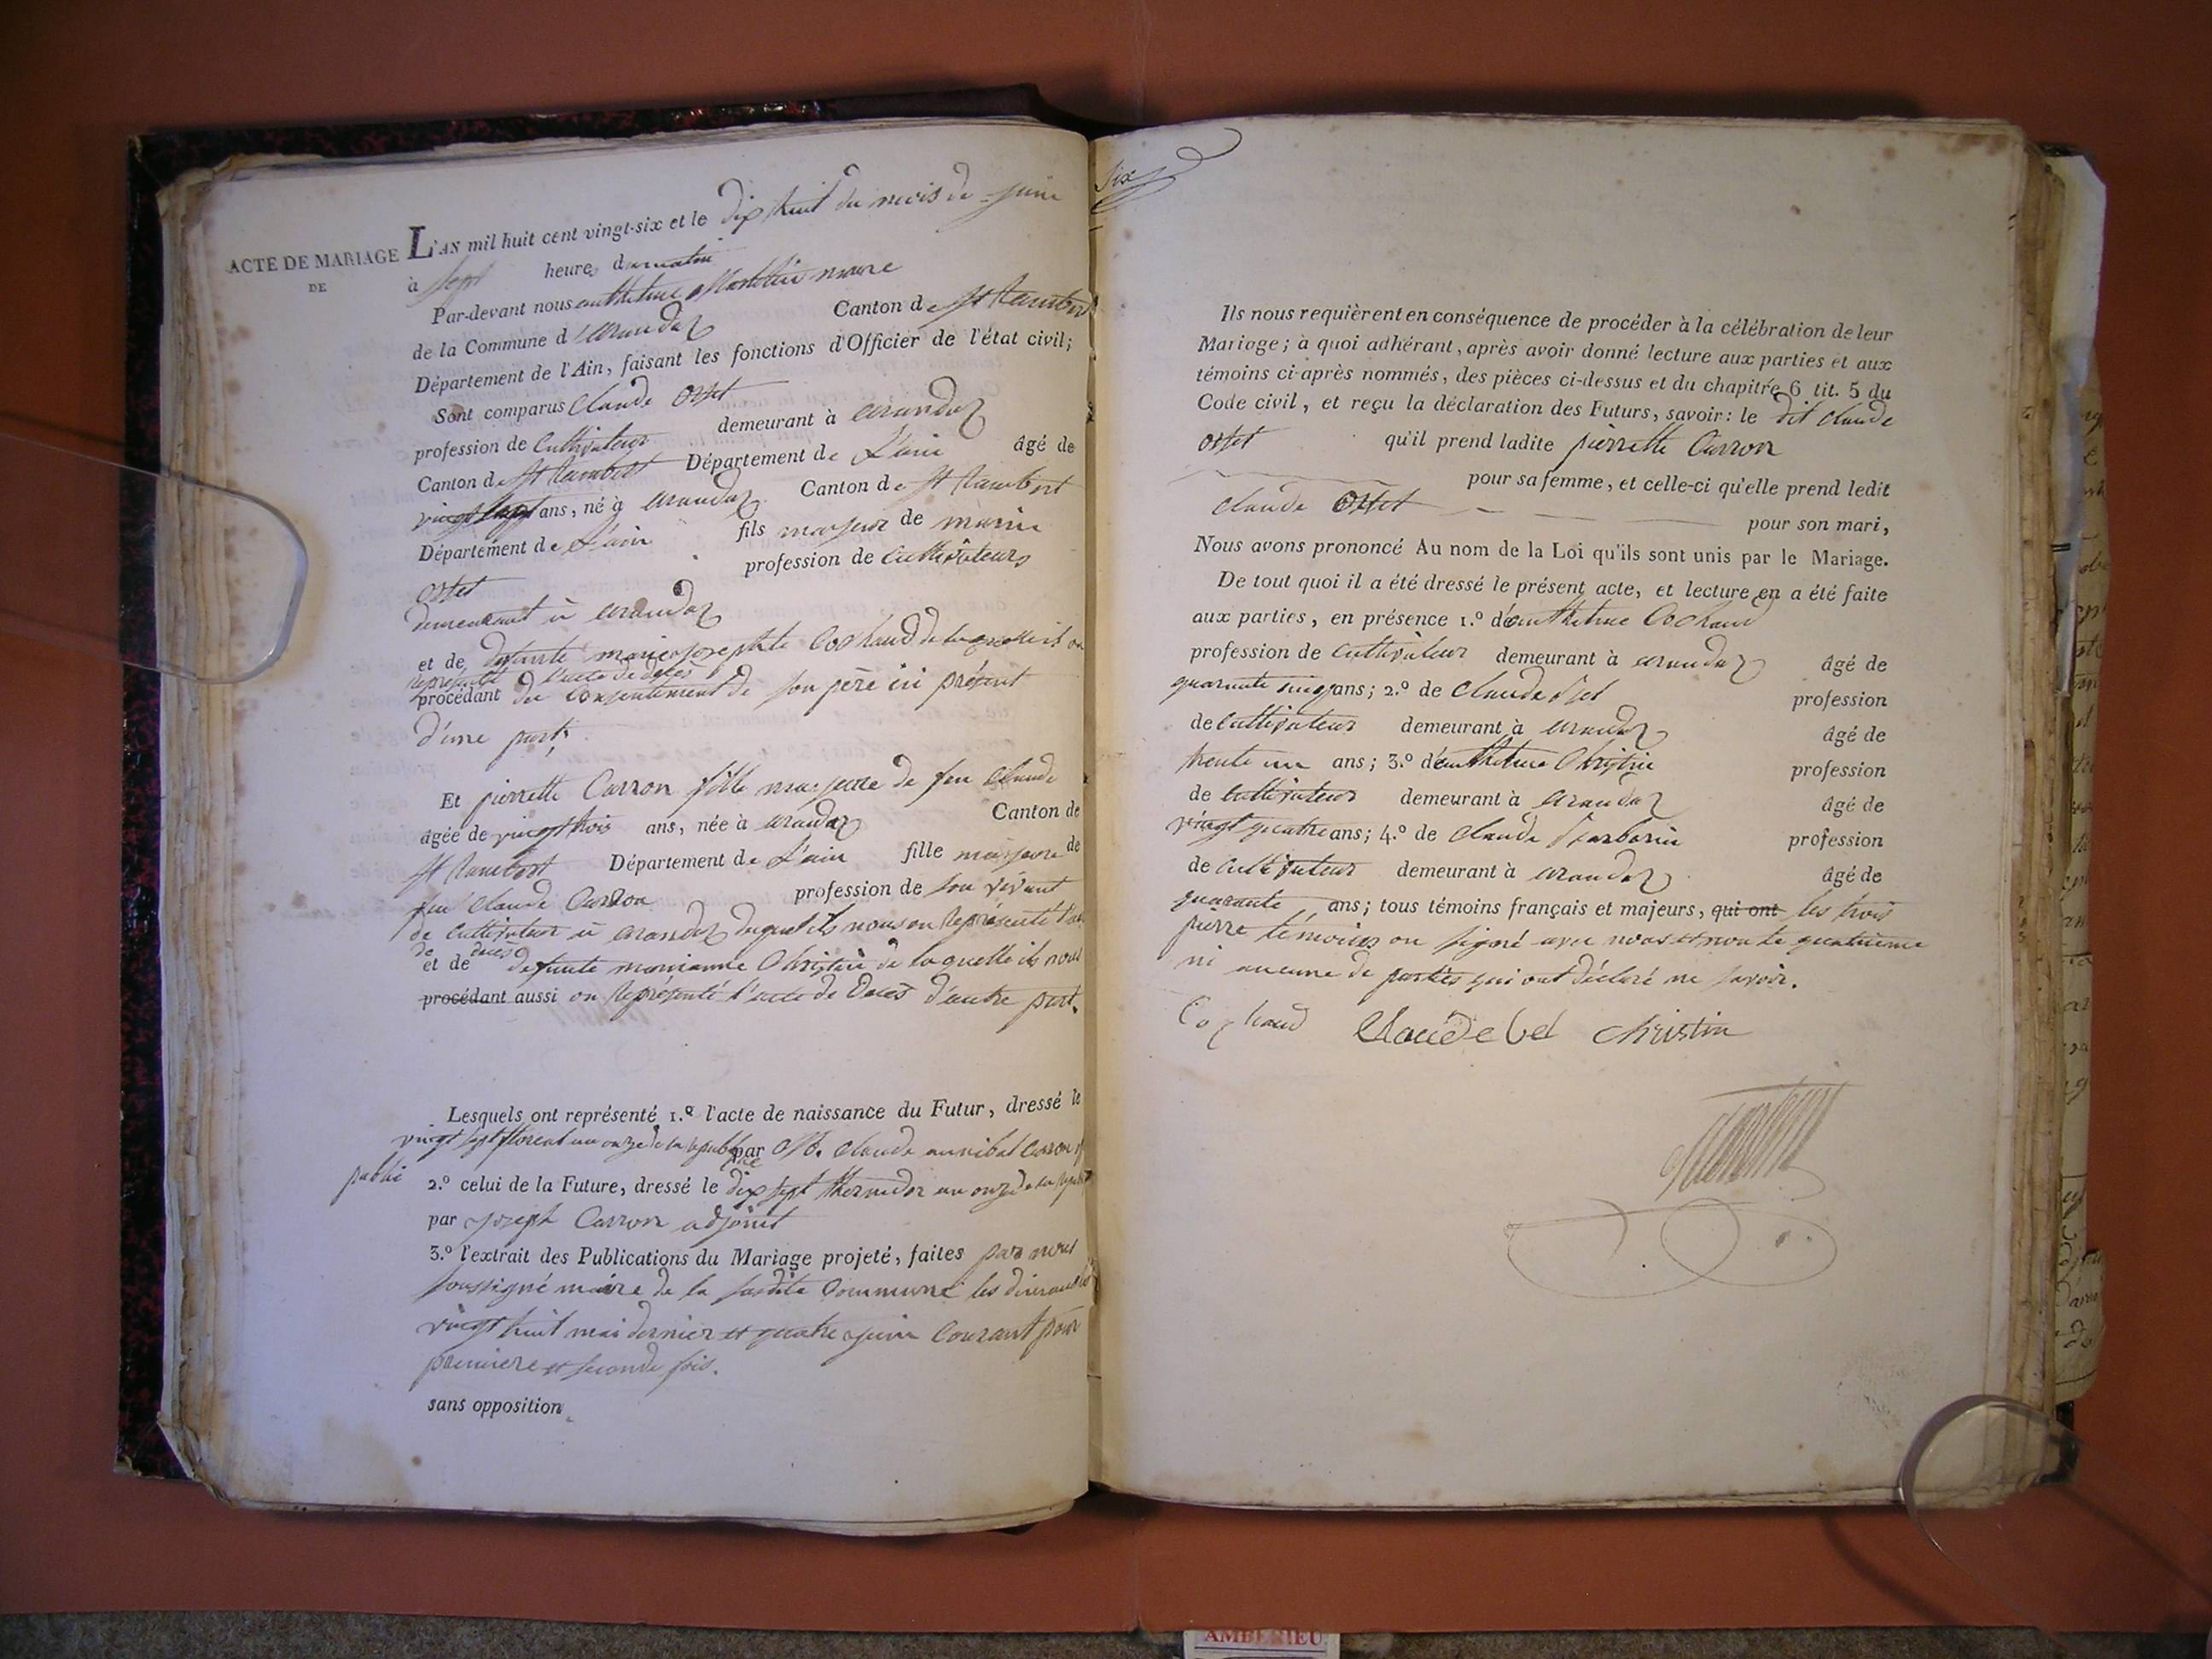 ACTE DE MARIAGE
DE
L'AN mil huit cent vingt-six et le dix huit du mois de juin
à sept heures du matin
Par-devant nous anthelme Martelin maire
de la Commune d'arandaz Canton de St Rambert
Département de l'Ain, faisant les fonctions d'Officier de l'état civil;
Sont comparus Claude Ostet
profession de Cultivateur demeurant à arandaz
Canton de St Rambert Département de L'ain âgé de
ans, né à arandaz Canton de St Rambert
Département de L'ain fils majeur de marin
Ostet profession de Cultivateurs
demeurant à arandaz
et de defunte marie josephte Cochaud de laquelle il a
représenté l'acte de décès
procédant du consentement de son père ici présent
d'une part;
Et pierrette Carron fille majeure de feu Claude
agée de vingt trois ans, née à arandaz Canton de
St Rambert Département de L'ain fille majeure de
feu Claude Carron profession de son vivant
de cultivateur à arandaz duquel ils nous on représenté
de décès
et de defunte marianne Christin de laquelle ils nous
procédant aussi on représenté l'acte de décès d'autre part.
Lesquels ont représenté 1.º l'acte de naissance du Futur, dressé le
vingt sept floreal an onze de la republique par Claude annibal Carron
2.º celui de la Future, dressé le dix sept thermidor an onze de la
par joseph Carron adjoint
3.º l'extrait des Publications du Mariage projeté, faites par nous
soussigné maire de la susdite Commune les dimanches
vingt huit mai dernier et quatre juin Courant pour
premiere et seconde fois.
sans opposition
Six
Ils nous requièrent en conséquence de procéder à la célébration de leur
Mariage; à quoi adhérant, après avoir donné lecture aux parties et aux
témoins ci-après nommés, des pièces ci-dessus et du chapitre 6 tit. 5 du
Code civil, et reçu la déclaration des Futurs, savoir: le dit Claude
Ostet qu'il prend ladite pierrette Carron
pour sa femme, et celle-ci qu'elle prend ledit
Claude Ostet pour son mari,
Nous avons prononcé Au nom de la Loi qu'ils sont unis par le Mariage.
De tout quoi il a été dressé le présent acte, et lecture en a été faite
aux parties, en présence 1.º d'anthelme Cochaud
profession de cultivateur demeurant à arandaz âgé de
quarante cinq ans; 2.º de Claude profession
de cultivateur demeurant à arandaz âgé de
trente un ans; 3.º d'anthelme Christin profession
de cultivateur demeurant à arandaz âgé de
vingt quatre ans; 4.º de Claude profession
de cultivateur demeurant à arandaz âgé de
quarante ans; tous témoins français et majeurs, qui ont les trois
témoins on signé avec nous et non le quatrieme
ni aucune de parties qui ont déclaré ne savoir.
Cochaud Claude bel Christin
AMBERIEU